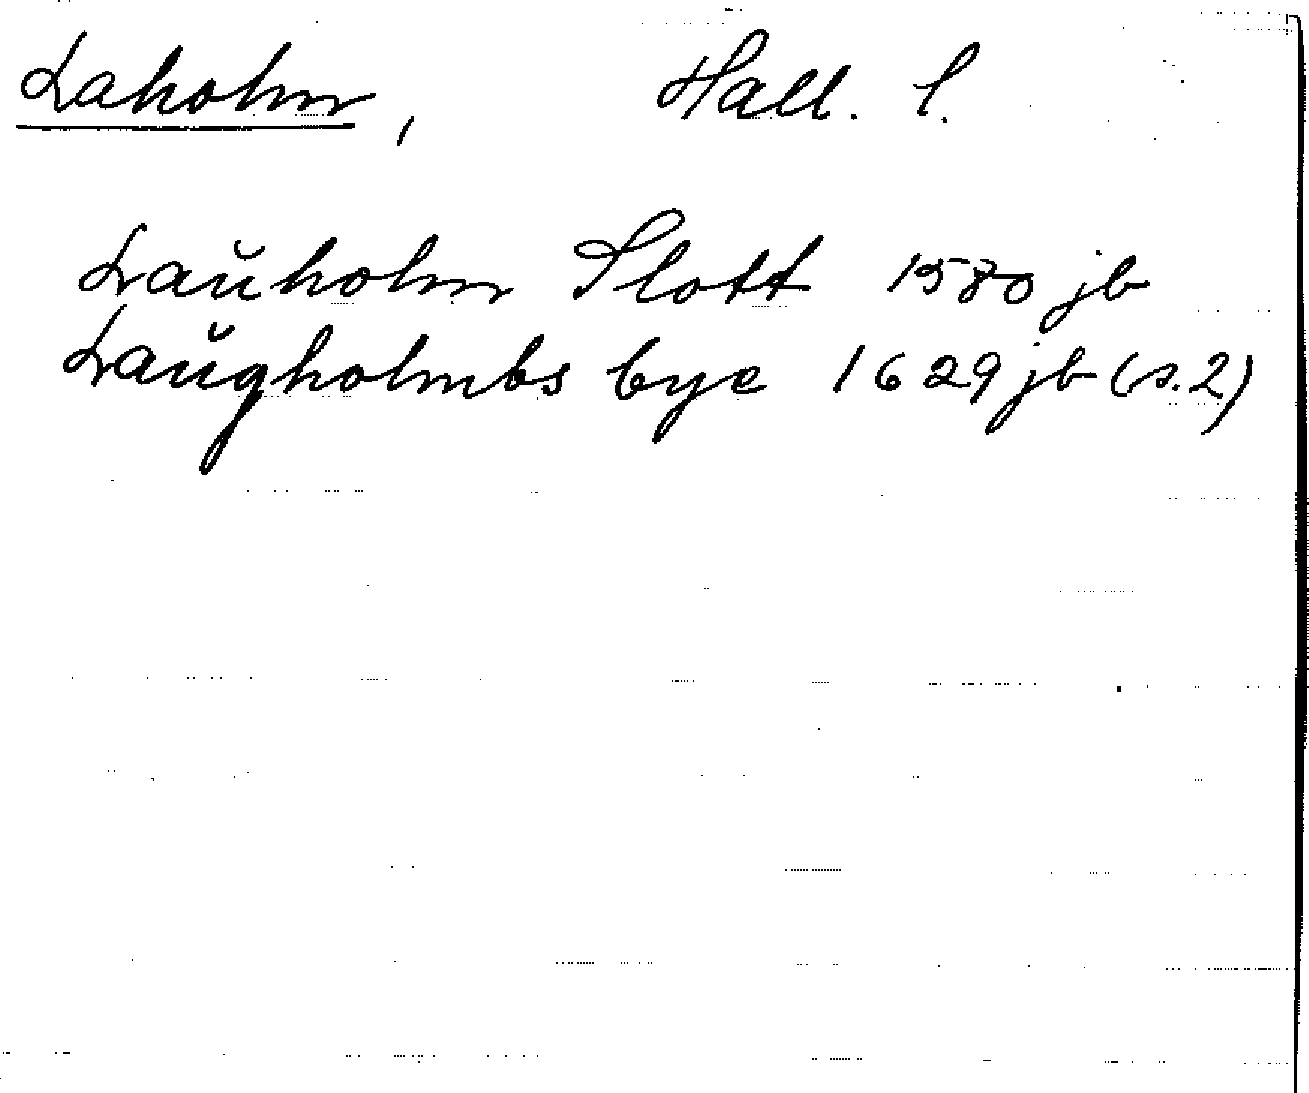 Laholm, Hall. l.
Lauholm Slott 1580 jb
Laugholmbs bye 1629 jb (s. 2)